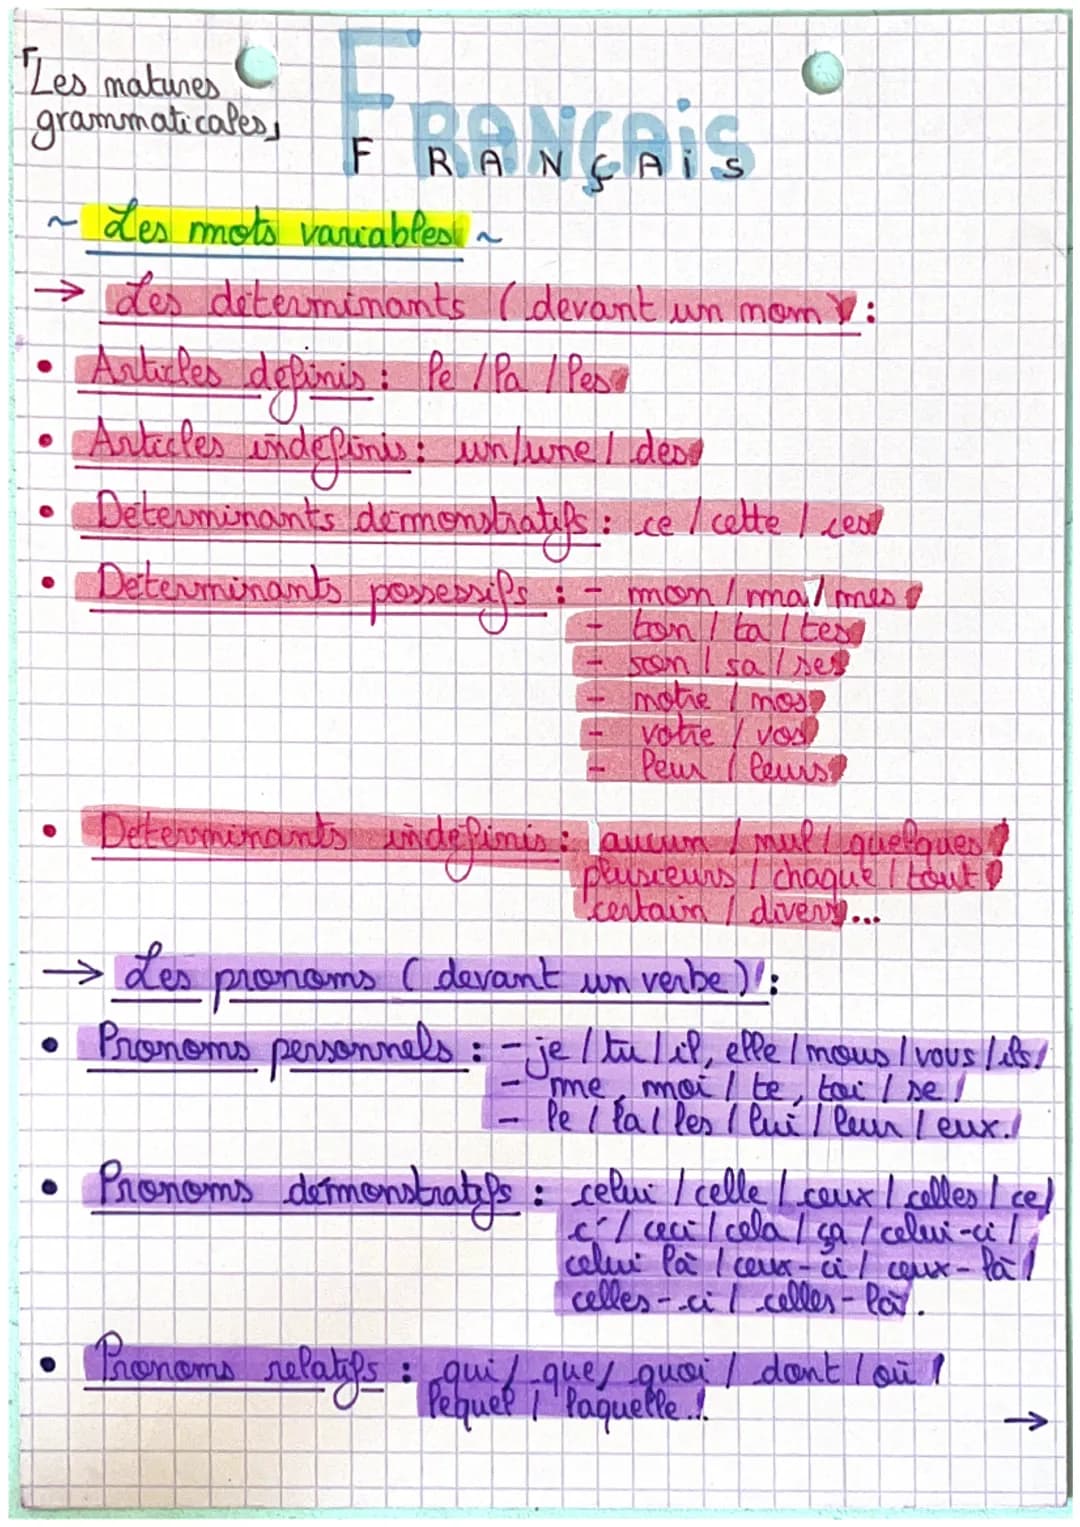 「Les natures
grammaticales」
FRANÇAIS
FRANÇAIS
~ Les mots variables ~
→ Les déterminants (devant un nom) :
• Articles définis : le / la / les
• Articles indéfinis : un/une / des
• Déterminants démonstratifs : ce / cette / ces
• Déterminants possessifs : - mon / ma / mes
- ton / ta / tes
- son / sa / ses
- notre / nos
- votre / vos
- leur / leurs
• Déterminants indéfinis : aucun / nul / quelques
plusieurs / chaque / tout
certain / divers...
→ Les pronoms (devant un verbe) :
• Pronoms personnels : - je / tu / il, elle / nous / vous / ils/
- me, moi / te, toi / se /
- le / la / les / lui / leur / eux.
• Pronoms démonstratifs : celui / celle / ceux / celles / ce/
c' / ceci / cela / ça / celui-ci /
celui là / ceux-ci / ceux-là /
celles-ci / celles-là.
• Pronoms relatifs : qui / que / quoi / dont / où /
lequel / laquelle...
→